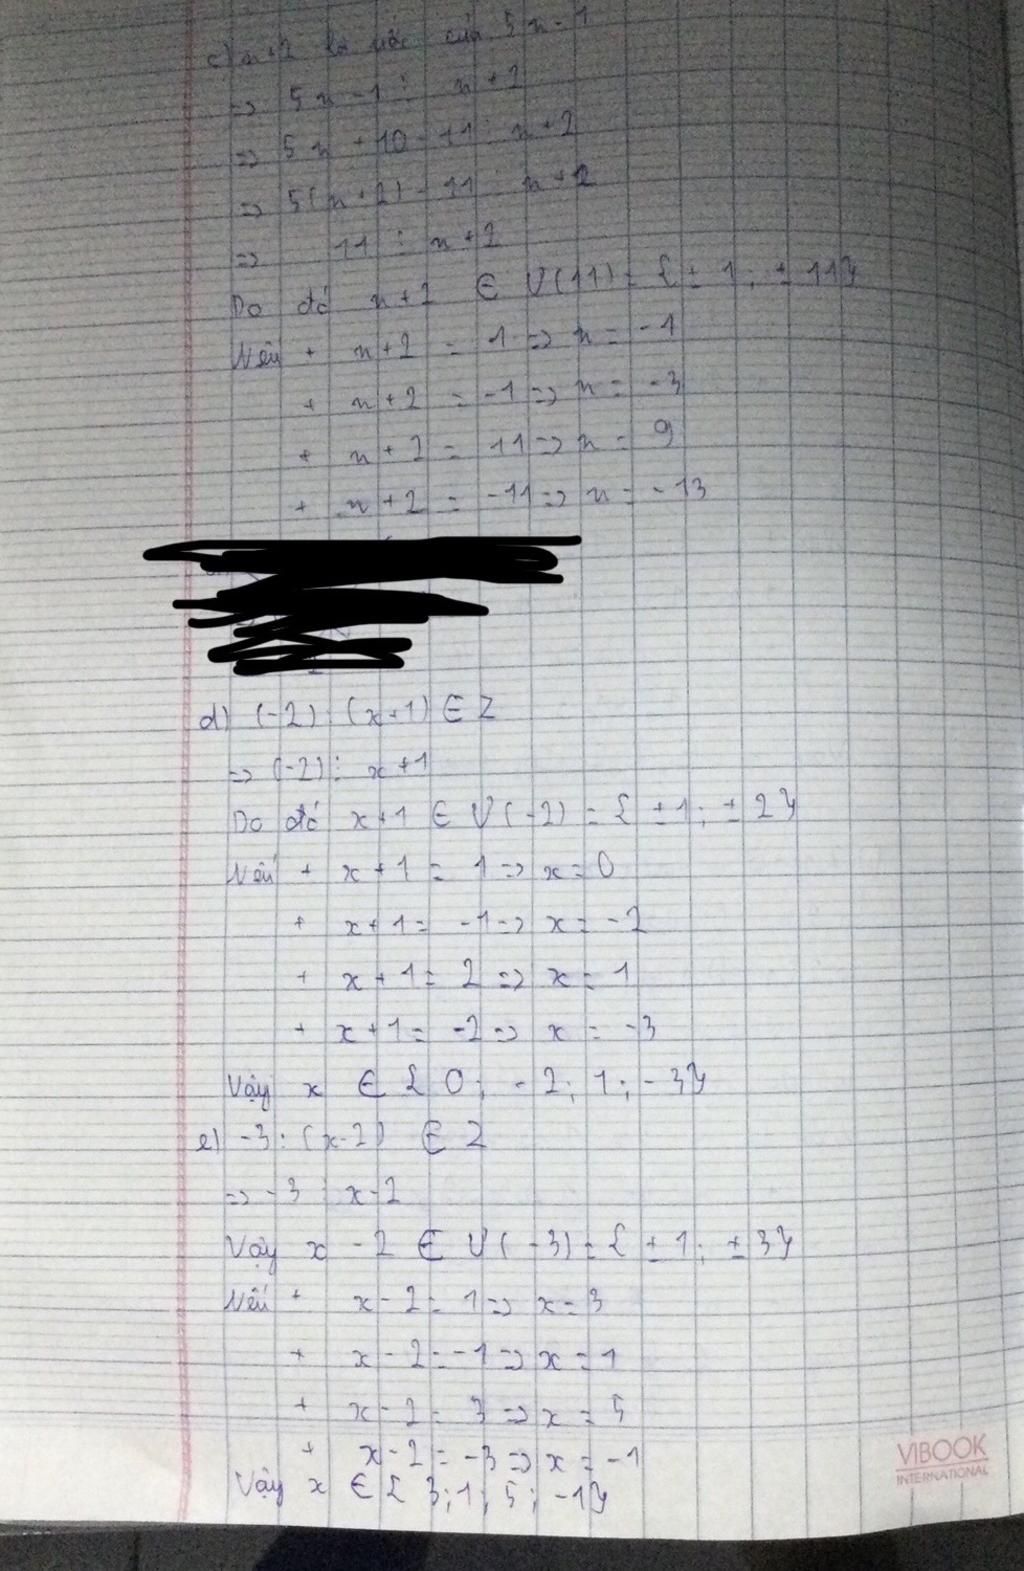 c) n+2 là ước của 5n-1
=> 5n-1 ⋮ n+2
=> 5n+10-11 ⋮ n+2
=> 5(n+2)-11 ⋮ n+2
=> 11 ⋮ n+2
Do đó n+2 ∈ Ư(11) = {±1; ±11}
Nếu + n+2 = 1 => n = -1
+ n+2 = -1 => n = -3
+ n+2 = 11 => n = 9
+ n+2 = -11 => n = -13
d) (-2) : (x+1) ∈ Z
=> (-2) ⋮ x+1
Do đó x+1 ∈ Ư(-2) = {±1; ±2}
Nếu + x+1 = 1 => x = 0
+ x+1 = -1 => x = -2
+ x+1 = 2 => x = 1
+ x+1 = -2 => x = -3
Vậy x ∈ {0; -2; 1; -3}
e) -3 : (x-2) ∈ Z
=> -3 ⋮ x-2
Vậy x-2 ∈ Ư(-3) = {±1; ±3}
Nếu + x-2 = 1 => x = 3
+ x-2 = -1 => x = 1
+ x-2 = 3 => x = 5
+ x-2 = -3 => x = -1
Vậy x ∈ {3; 1; 5; -1}
VIBOOK
INTERNATIONAL